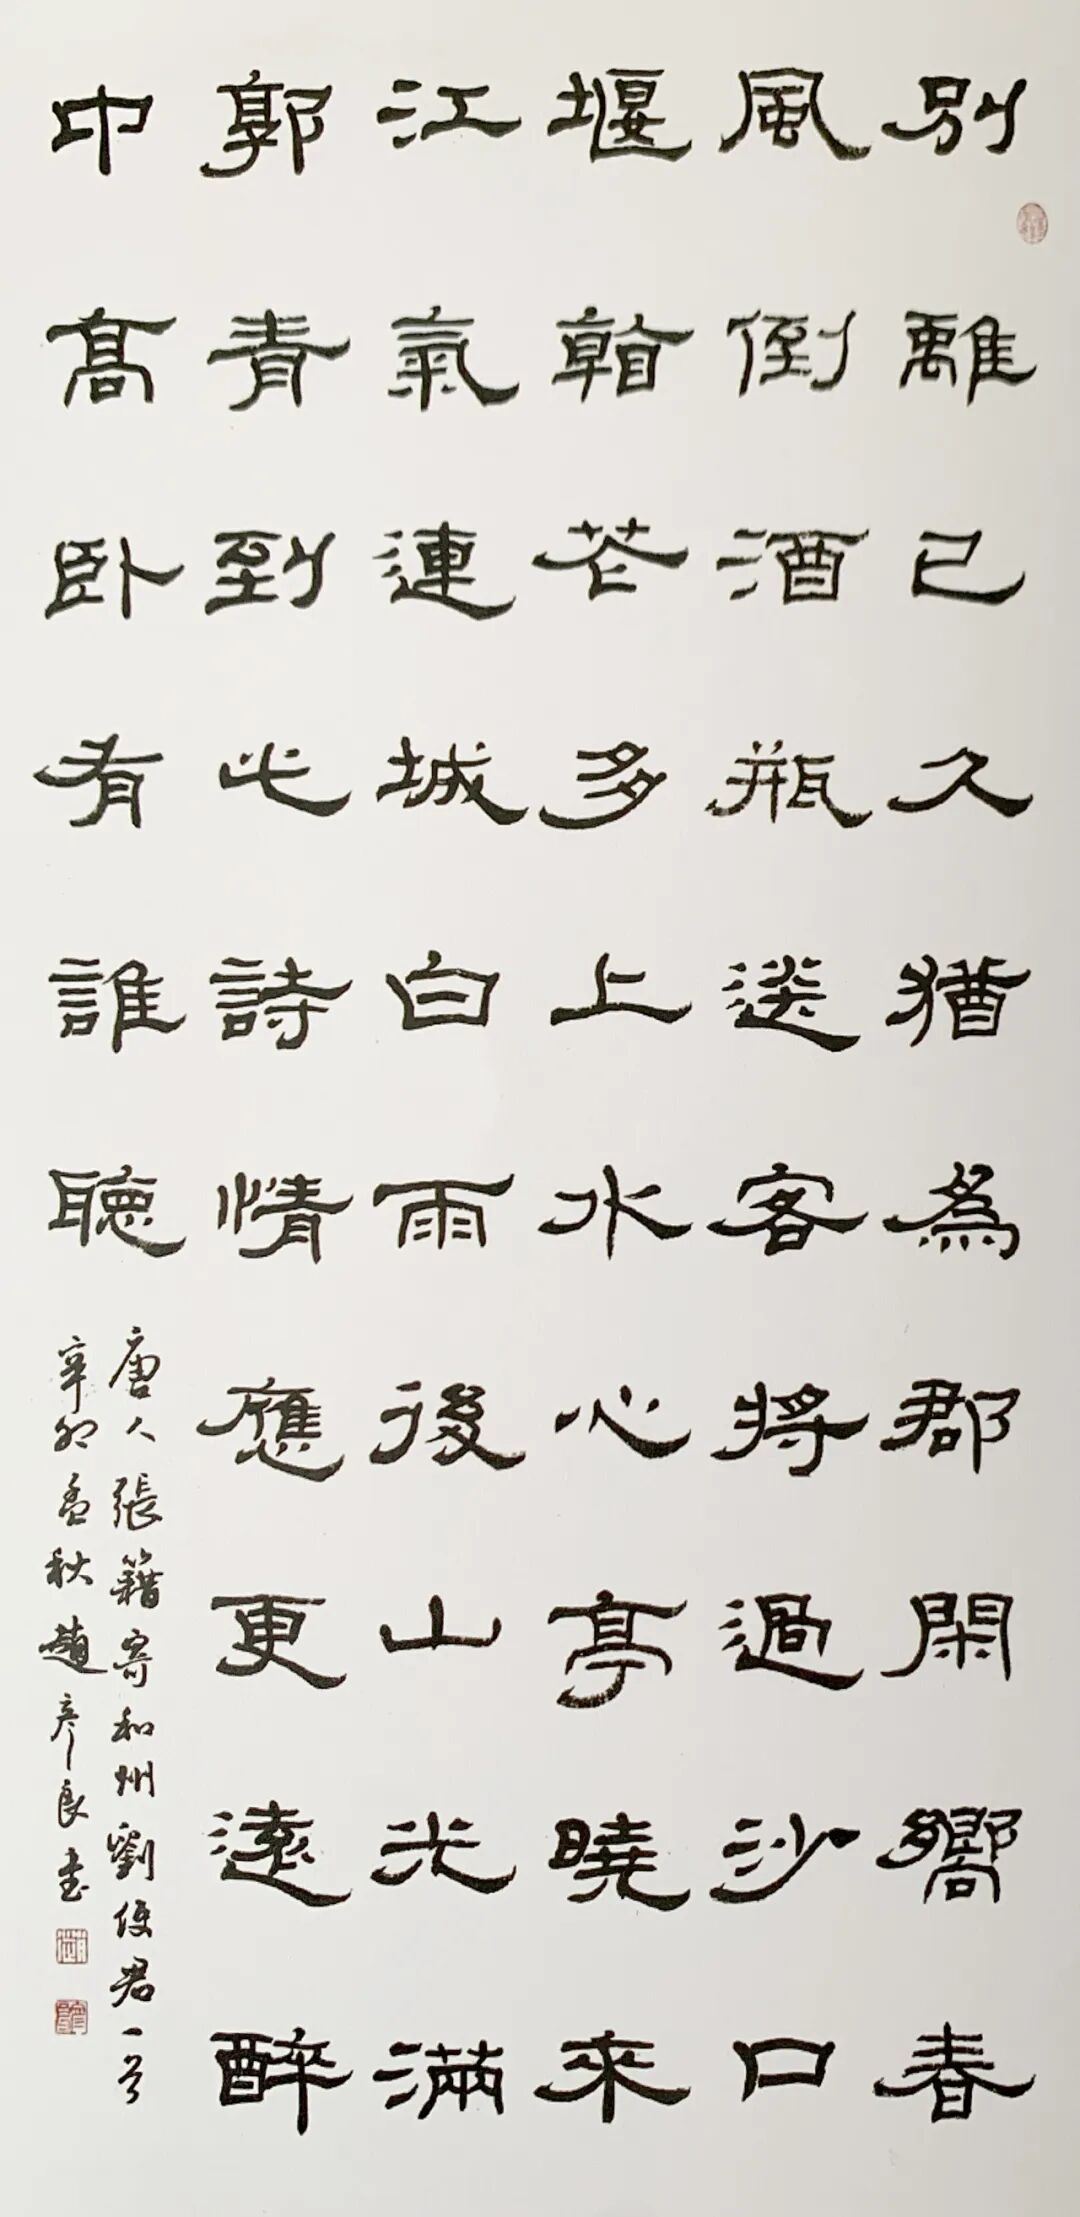 別離已久猶為郡閑嚮春
風倒酒瓶送客將過沙口
堰看花多上水心亭曉來
江氣連城白雨後山光滿
郭青到此詩情應更遠醉
中高卧有誰聽
唐人張籍寄和州劉使君一首
辛卯孟秋趙彥良書